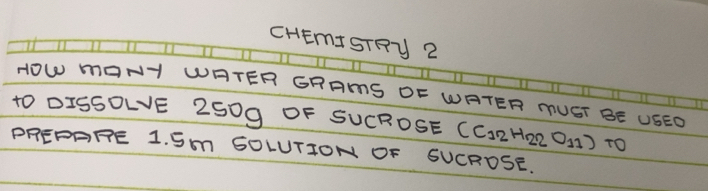 CHEMISTRY 2
HOW MANY WATER GRAMS OF WATER MUST BE USED
TO DISSOLVE 250g OF SUCROSE (C12H22O11) TO
PREPARE 1.5m SOLUTION OF SUCROSE.